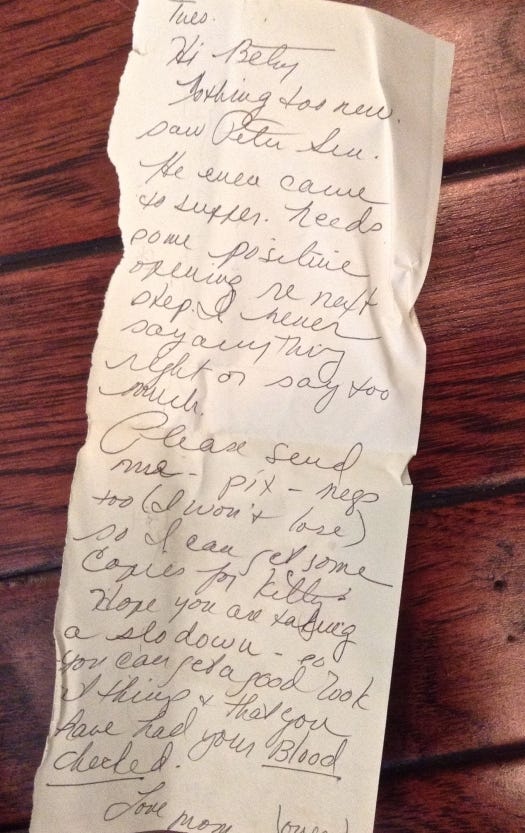 Tues.
Hi Betsy
Nothing too new.
saw Peter Sun.
He even came
to supper. Needs
some positive
opening re next
step. I never
say anything
right or say too
much.
Please send
me - pix - negs
too (I won't lose)
so I can get some
copies for Kitty.
Hope you are taking
a slo down - so
you can get a good look
at things & that you
have had your Blood
checked.
Love mom (over)